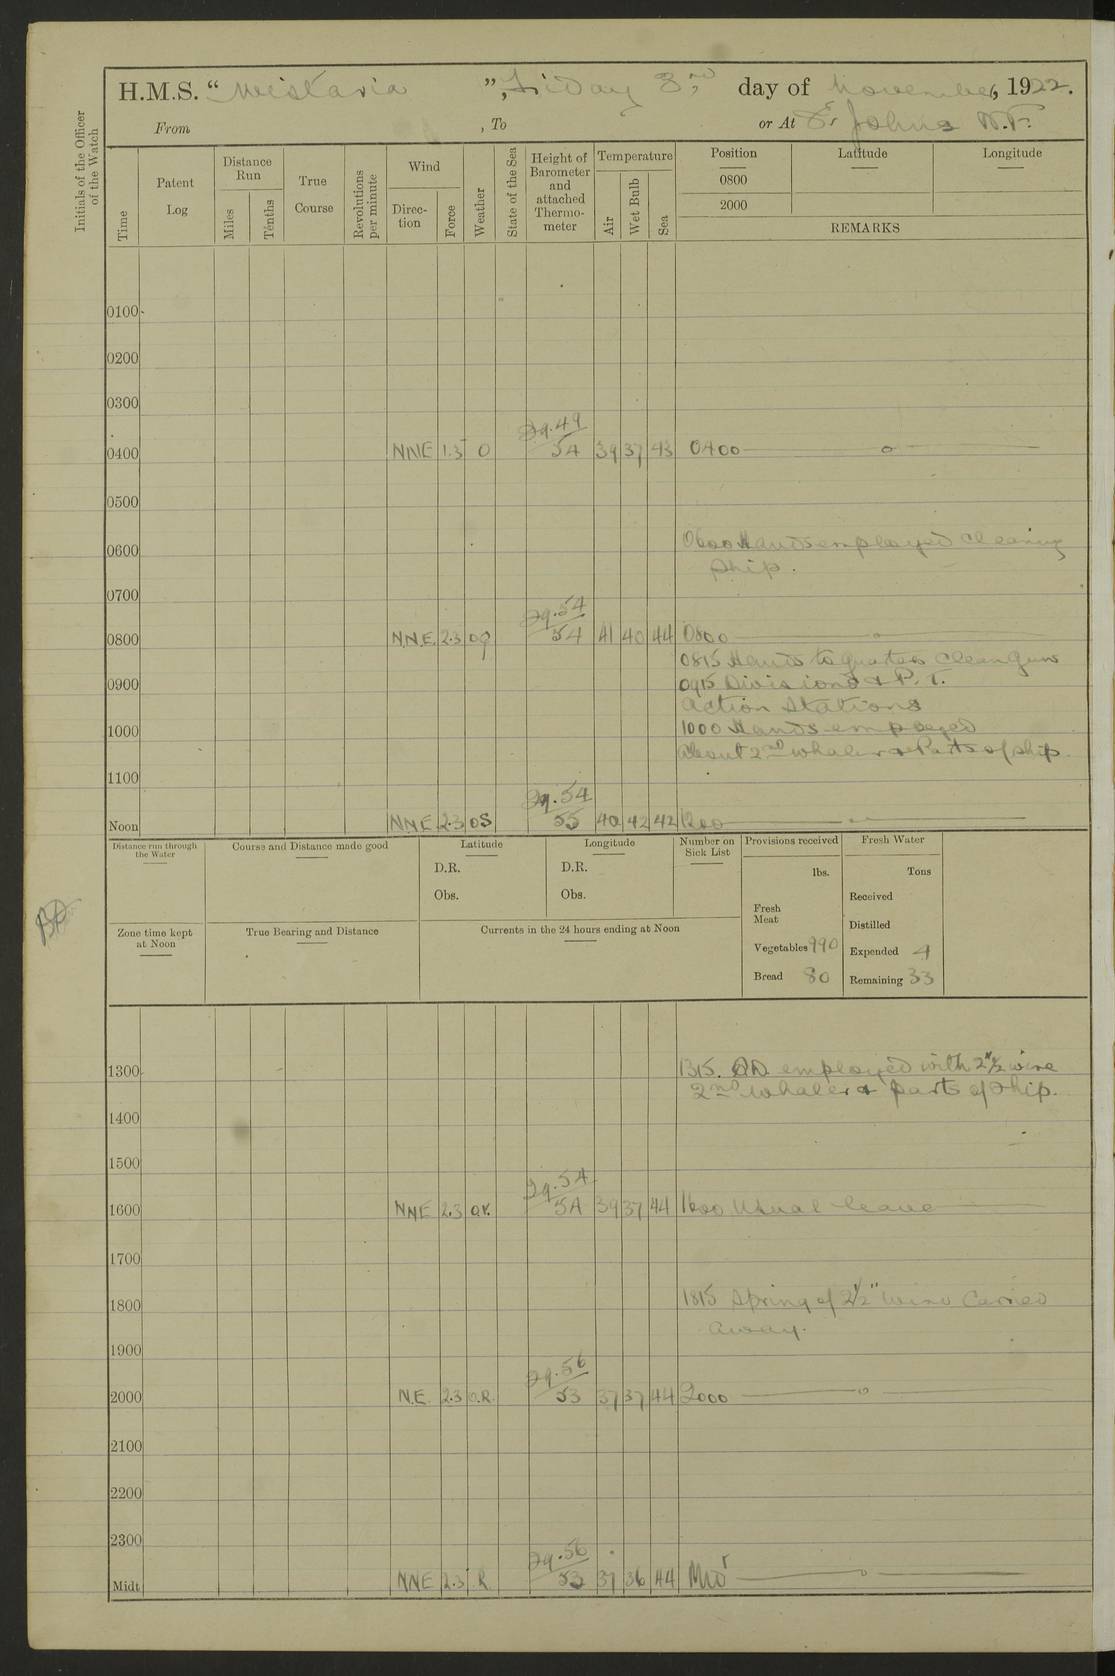 H.M.S. “ Wistaria ”, Friday 3rd day of November, 1922.
From , To or At St Johns N.F.
Initials of the Officer of the Watch
Time
Patent Log
Distance Run
Miles
Tenths
True Course
Revolutions per minute
Wind
Direction
Force
Weather
State of the Sea
Height of Barometer and attached Thermometer
Temperature
Air
Wet Bulb
Sea
Position Latitude Longitude
0800
2000
REMARKS
0100
0200
0300
29.49
0400 NNE 1.3 O 54 39 37 43 0400 —— o ——
0500
0600 0600 Hands employed cleaning
ship.
0700
29.54
0800 N.N.E. 2.3 og 54 41 40 44 0800 ——
0815 Hands to quarters clean guns
0900 0915 Divisions & P.T.
Action Stations
1000 1000 Hands employed
about 2nd whaler & Parts of ship
1100
29.54
Noon NNE 2.3 OS 55 40 42 42 1200 ——
Distance run through the Water
Course and Distance made good
Latitude
D.R.
Obs.
Longitude
D.R.
Obs.
Number on Sick List
Provisions received
lbs.
Fresh Meat
Vegetables 990
Bread 80
Fresh Water
Tons
Received
Distilled
Expended 4
Remaining 33
Zone time kept at Noon
True Bearing and Distance
Currents in the 24 hours ending at Noon
1300 1315. employed with 2½" wire
2nd whaler & parts of ship.
1400
1500
29.54
1600 NNE 2.3 OR. 54 39 37 44 1600 Usual leave ——
1700
1800 1815 Spring of 2½" wire Carried
away.
1900
29.56
2000 N.E. 2.3 O.R. 53 37 37 44 2000 —— o
2100
2200
2300
29.56
Midt NNE 2.3 R 53 37 36 44 Mid —— o ——